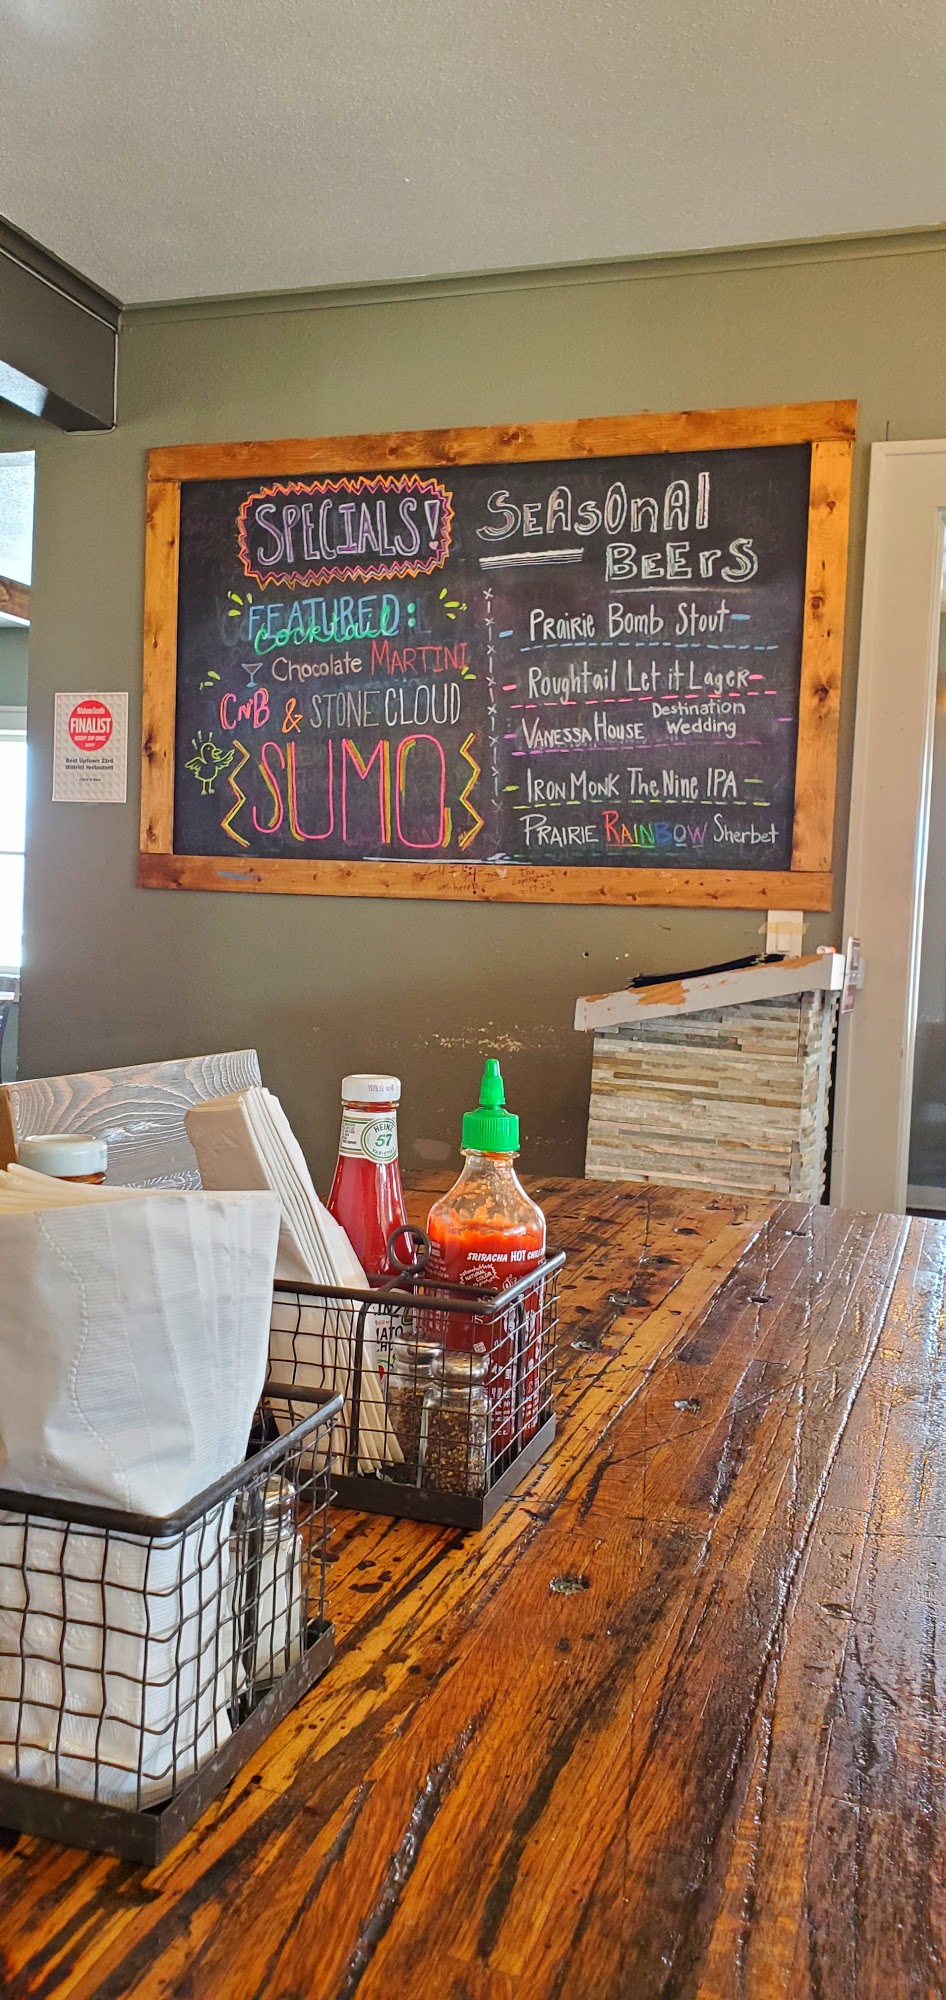 SPECIALS!
FEATURED:
cocktail
Chocolate MARTINI
CNB & STONE CLOUD
SUMO
SEASONAL
BEERS
PRAIRIE BOMB STOUT
ROUGHTAIL LET it LAGER
VANESSA HOUSE Destination Wedding
IRON MONK THE NINE IPA
PRAIRIE RAINBOW Sherbet
was here
FINALIST
BEST OF OKC
2017
Best Uptown 23rd
district restaurant
HEINZ
57
VARIETIES
SRIRACHA HOT